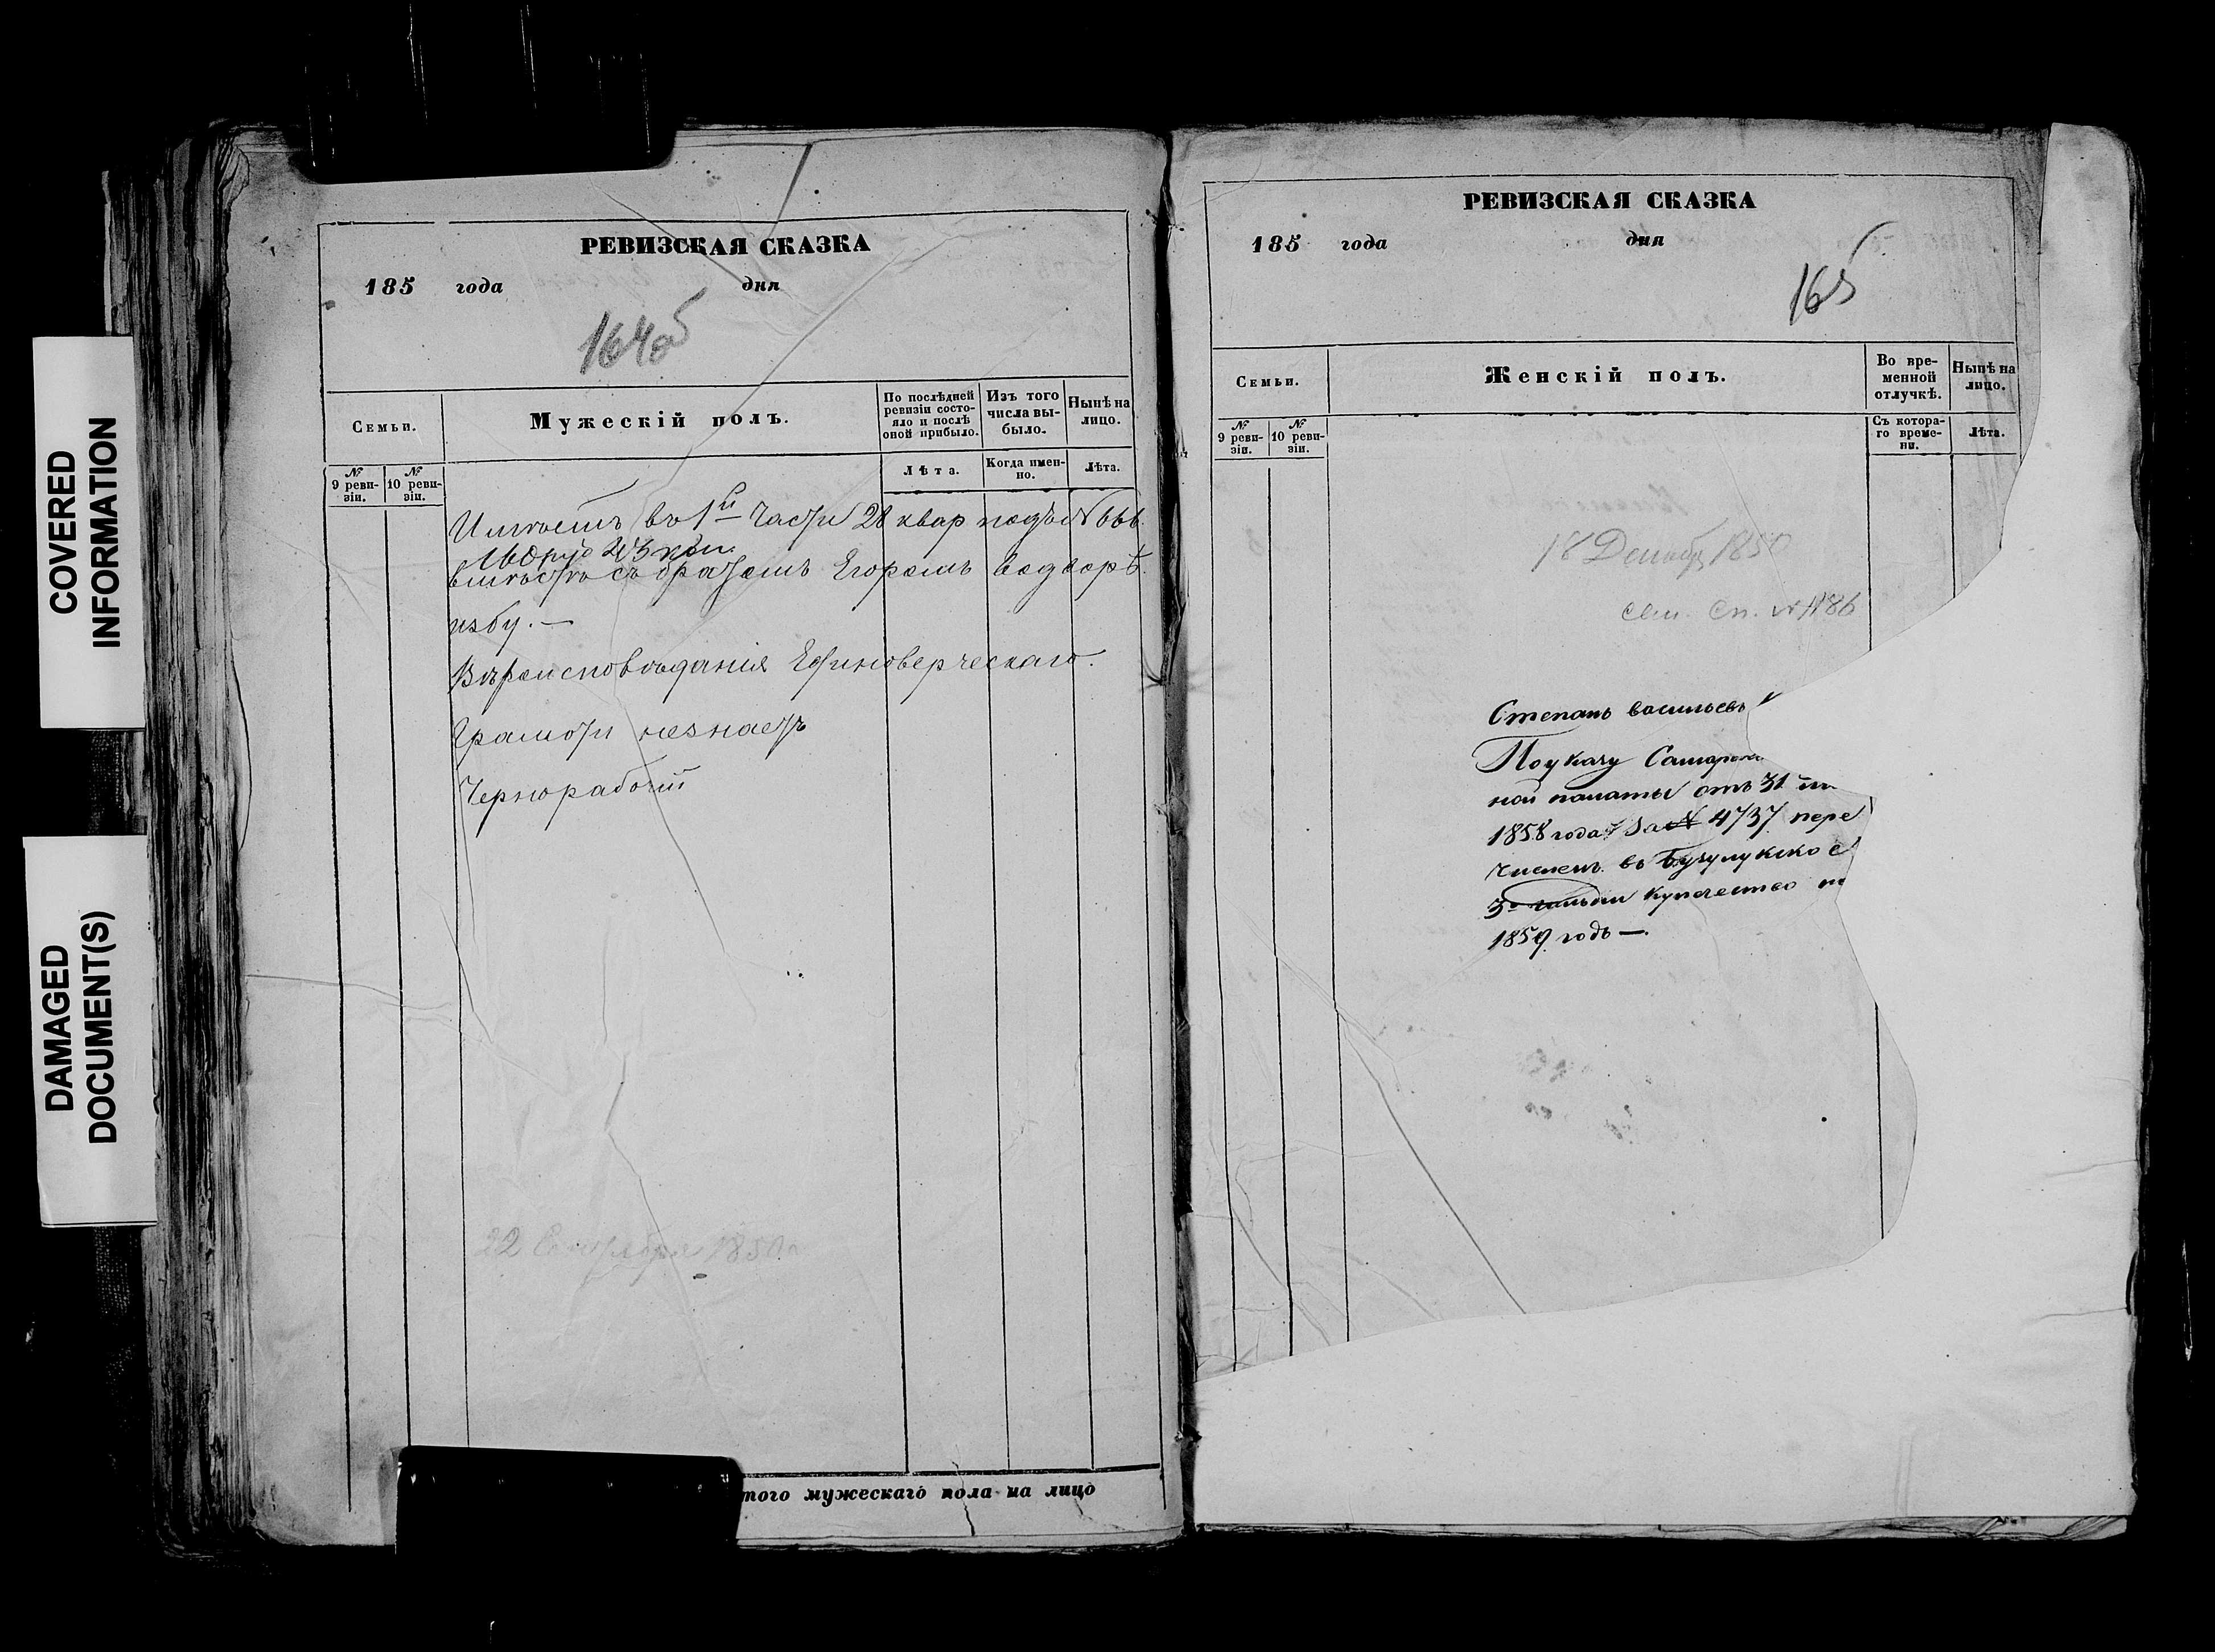 COVERED
INFORMATION
DAMAGED
DOCUMENT(S)
РЕВИЗСКАЯ СКАЗКА
185 года дня
164об
Семьи.
Мужескій полъ.
По послѣдней ревизіи состояло и послѣ оной прибыло.
Изъ того числа выбыло.
Нынѣ на лицо.
№ 9 ревизіи.
№ 10 ревизіи.
Лѣта.
Когда именно.
Лѣта.
Имѣетъ въ 1й части 28 квар подъ № 666.
вмѣстѣ съ братомъ Егоромъ водворѣ
избу. —
Вѣроисповѣданія Единоверческаго.
Грамоти незнаетъ
Чернорабочій
22 Сентября 185
того мужескаго пола на лицо
РЕВИЗСКАЯ СКАЗКА
185 года дня
165
Семьи.
Женскій полъ.
Во временной отлучкѣ.
Нынѣ на лицо.
№ 9 ревизіи.
№ 10 ревизіи.
Съ котораго времени.
Лѣта.
18 Декабр 1850
см. Сп. № 1186
Степанъ васильевъ
Поуказу Самарск
ной палаты отъ 31
1858 года за № 4737 пере
численъ въ Бузулукско е
3й гильдіи купечество
1859 годъ —.